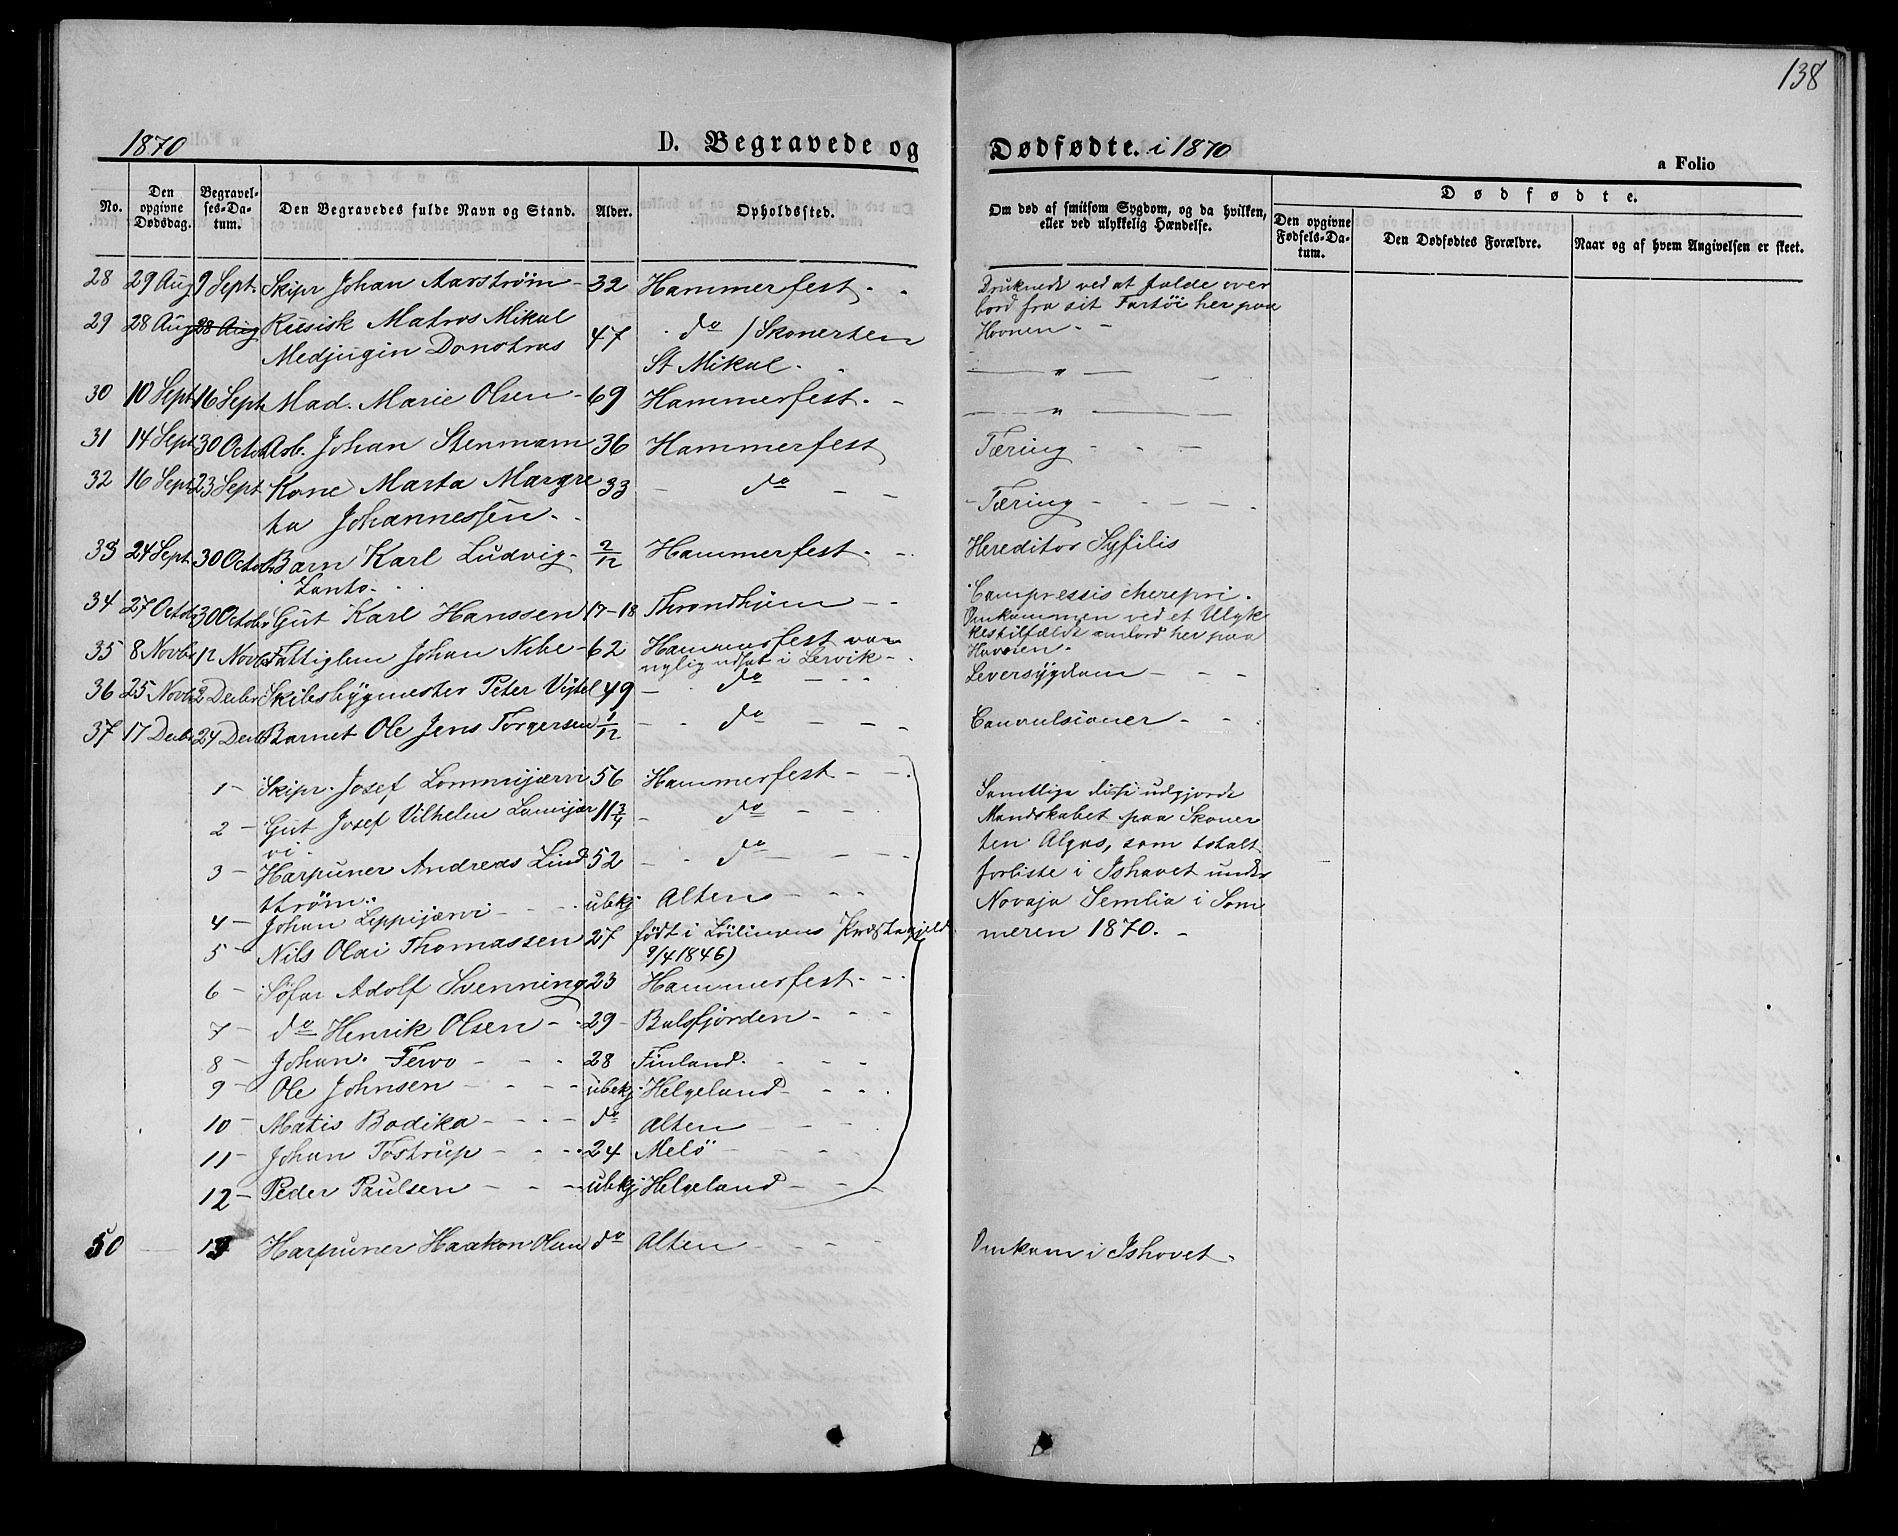 138
1870 D. Begravede og Dødfødte. i 1870
a Folio
No. Den opgivne Dødsdag. Begravelses-Datum. Den Begravedes fulde Navn og Stand. Alder. Opholdssted. Om død af smitsom Sygdom, og da hvilken, eller ved ulykkelig Hændelse. Dødfødte. Den opgivne Fødsels-Datum. Den Dødfødtes Forældre. Naar og af hvem Angivelsen er skeet.
28 29 Aug 9 Sept. Skipr Johan Aarstrøm 32 Hammerfest Druknede ved at falde over
bord fra sit Fartöi her paa
Havnen.
29 28 Aug 28 Aug Russisk Matros Mikal
Medjugin Donotras 47 do / Skonerten
St Mikal. — " —
30 10 Sept 16 Sept Mad. Marie Olsen 69 Hammerfest. — " —
31 14 Sept 30 Octob Arb. Johan Stenmann 36 Hammerfest Tæring
32 16 Sept 23 Sept Kone Marta Margre
ta Johannessen 33 do Tæring
33 24 Sept. 30 Octob Barn Karl Ludvig
Lanto 2/12 Hammerfest. Hereditær Syfilis
34 27 Octob 30 Octobr Gut Karl Hanssen 17-18 Throndhjem Compressis
Omkommen ved et Ulyk
kestilfældt ombord her paa
Havnen.
35 8 Novbr 12 Novbr Fattiglem Johan Nibe 62 Hammerfest
nylig udsat i Lervik Leversygdom
36 25 Novbr 2 Decbr Skibsbygmester Peter 49 do
37 17 Decbr 24 Decbr Barnet Ole Jens Torgersen 1/12 do Convulsioner
1 Skipr. Josef Lommijærvi 56 Hammerfest Samtlige disse udgjorde
2 Gut Josef Vilhelm Lomijær
vi. 11 3/4 do Mandskabet paa Skoner
3 Harpuner Andreas Lind
strøm. 52 do ten Algas, som totalt
forliste i Ishavet under
4 Johan Leppijærvi ubekj Alten Novaja Semlia i Som
5 Nils Olai Thomassen 27 født i Præstegjeld
9/4 1846) meren 1870.
6 Adolf Svenning 23 Hammerfest
7 do Henrik Olsen 29 Balsfjorden
8 Johan Tervo 28 Finland.
9 Ole Johnsen ubekj. Helgeland
10 Matis Bodika do Alten
11 Johan Tostrup 24 Melö
12 Peder Paulsen ubekj Helgeland
50 13 Harpuner Haakon Olsen do Alten Omkom i Ishavet.